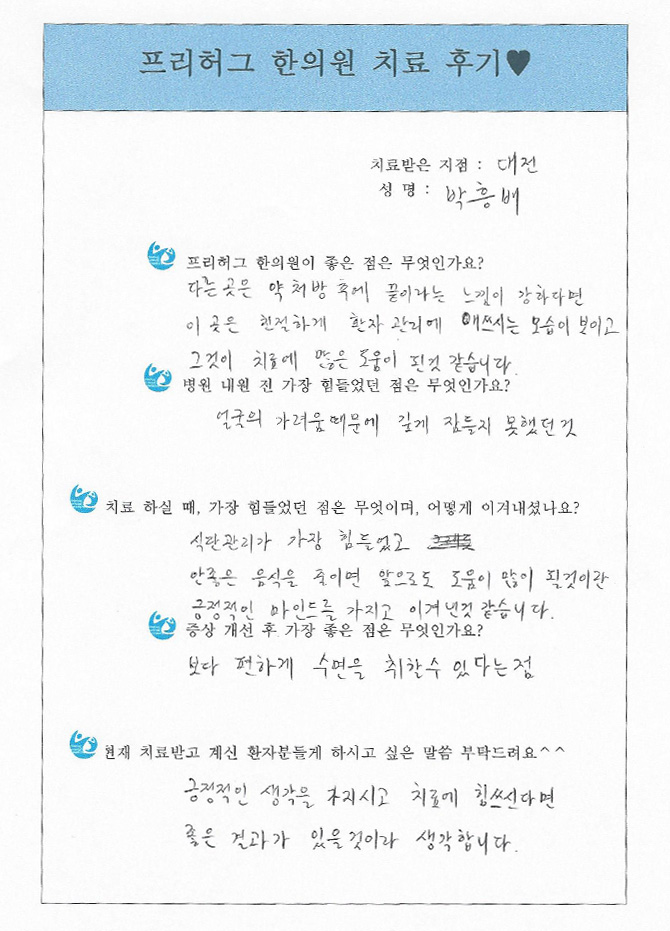 프리허그 한의원 치료 후기♥
치료받은 지점 : 대전
성 명 : 박흥배
프리허그 한의원이 좋은 점은 무엇인가요?
다른 곳은 약 처방 후에 끝이라는 느낌이 강하다면
이 곳은 친절하게 환자 관리에 애쓰시는 모습이 보이고
그것이 치료에 많은 도움이 된것 같습니다.
병원 내원 전 가장 힘들었던 점은 무엇인가요?
얼굴의 가려움때문에 깊게 잠들지 못했던것
치료 하실 때, 가장 힘들었던 점은 무엇이며, 어떻게 이겨내셨나요?
식단관리가 가장 힘들었고
안좋은 음식을 줄이면 앞으로도 도움이 많이 될것이란
긍정적인 마인드를 가지고 이겨낸것 같습니다.
증상 개선 후 가장 좋은 점은 무엇인가요?
보다 편하게 수면을 취할수 있다는점
현재 치료받고 계신 환자분들게 하시고 싶은 말씀 부탁드려요^^
긍정적인 생각을 가지시고 치료에 힘쓰신다면
좋은 결과가 있을것이라 생각합니다.